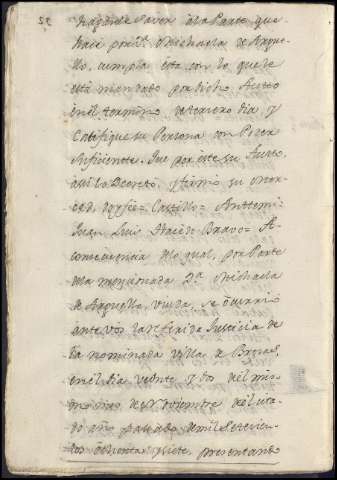 hagasele saver a la Parte que
hace por Dª. Michaela de Argue-
llo, cumpla esta con lo que le
está mandado por dicho Auto
en el termino de tercero dia y
Califique su Persona con Poder
suficiente. Que por este su Auto,
assi lo Decretó, y firmó su Mer-
ced, doy fee = Castillo = Anttemi =
Juan Luis Bravo = A
consequencia de lo qual, por Parte
de la mencionada Dª. Michaela
de Arguello, viuda, se ocurrió
ante vos la referida Justicia de
la nominada Villa de
en el dia veinte y dos del mis-
mo mes de Noviembre del cita-
do año pasado de mil setecien-
tos ochenta y siete, presentando